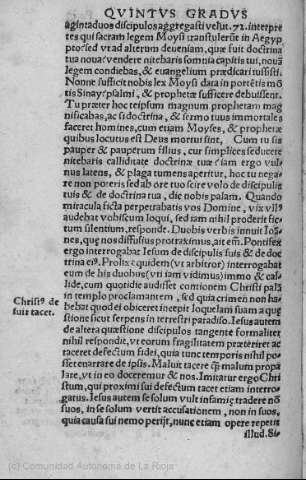 QVINTVS GRADVS
agintaduos discipulos aggregasti velut .72. interpre
tes qui sacram legem Moysi transtulerūt in Aegyp
pto: sed vt ad alterum deueniam, quæ fuit doctrina
tua noua? vendere nitebaris somnia capitis tui, nouā
legem condebas, & euangelium prædicari iussisti.
Nonne sufficit nobis lex Moysi data in portētis mō
tis Sinay? psalmi, & prophetæ sufficere debuissent.
Tu præter hoc teipsum magnum prophetam mag
nificabas, ac si doctrina, & sermo tuus immortales
faceret homines, cum etiam Moyses, & prophetæ
quibus locutus est Deus mortui sint, Cum tu sis
pauper & pauperum filius, cur simplices seducere
nitebaris calliditate doctrinæ tuæ? iam ergo vul-
nus latens, & plaga tumens aperitur, hoc tu nega-
re non poteris sed ab ore tuo scire volo de discipulis
tuis & de doctrina tua, dic nobis palam. Quando
miracula ficta perperabatis vos Domini, vix vllº
audebat vobiscum loqui, sed iam nihil proderit fic-
tum silentium, responde. Duobis verbis innuit Ioā-
nes, que nos diffusius protraximus, ait em̄. Pontifex
ergo interrogabat Iesum de discipulis suis & de doc
trina eiº. Prolixe quidem (vt arbitror) interrogabat
eum de his duobus (vti iam vidimus) immo & cal-
lide, cum quotidie audisset contionem Christi palā
in templo proclamantem, sed quia crimen non ha-
bebat quod ei obiiceret inepit loquelam suam a quę
stione sicut serpens in terrestri paradiso. Iesus autem
de altera quæstione discipulos tangente formaliter
nihil respondit, vt eorum fragilitatem præteriret ac
taceret defectum fidei, quia tunc temporis nihil po-
sset enarrare de ipsis. Maluit tacere q̄ malum propa
lare, vt in eo doceremur & nos. Imitatur ergo Chri
stum, qui proximi sui defectum tacet etiam interro-
gatus. Iesus autem se solum vult infamię tradere nō
suos, in se solum vertit accusationem, non in suos,
quia causa sui nemo perijt, nunc etiam opere repetit
illud. Si-
Christº de
fuit tacet.
(c) Comunidad Autónoma de La Rioja